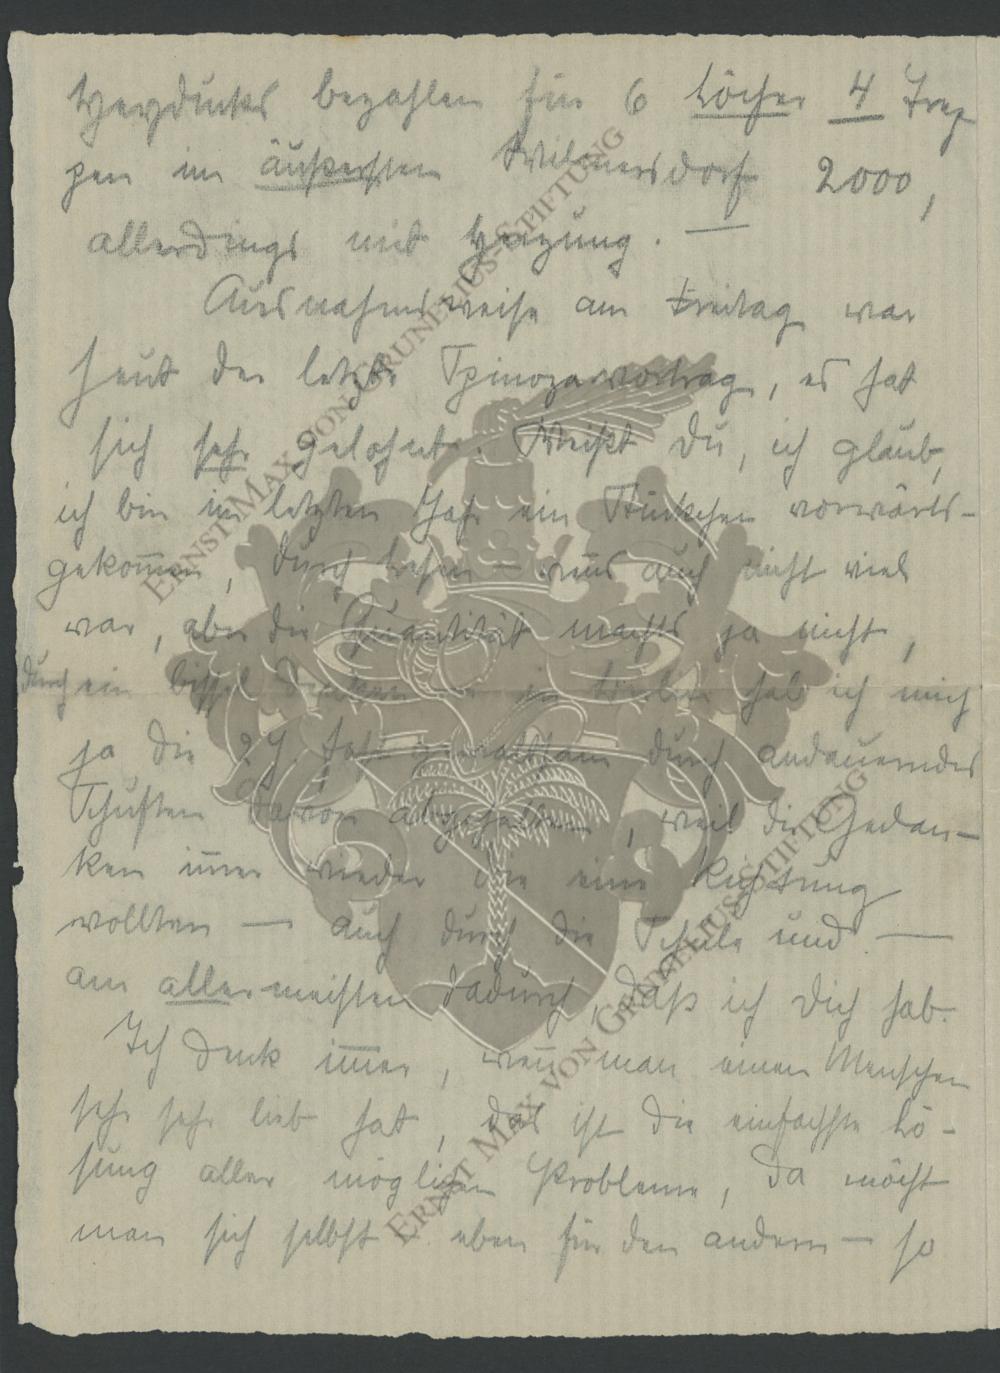 Heyducks bezahlen für 6 Löcher 4 Trep
pen im äußersten Wilmersdorf 2000,
allerdings mit Heizung. —
Ausnahmsweise am Freitag war
heut der letzte Spinozavortrag, es hat
sich sehr gelohnt. Weißt Du, ich glaub,
ich bin im letzten Jahr ein Stückchen vorwärts-
gekommen, durch Lesen – wenns auch nicht viel
war, aber die Quantität machts ja nicht,
durch ein bissel Denken – in hab ich mich
ja die 2 J. fast gewaltsam durch andauerndes
Schuften davon abgehalten, weil die Gedan-
ken immer wieder die eine Richtung
wollten — auch durch die Schule und —
am allermeisten dadurch, daß ich Dich hab.
Ich denk immer, wenn man einen Menschen
sehr sehr lieb hat, das ist die einfachste Lö-
sung aller möglichen Probleme, da möcht
man sich selbst eben für den andern – so
ERNST MAX VON GRUNELIUS-STIFTUNG
ERNST MAX VON GRUNELIUS-STIFTUNG